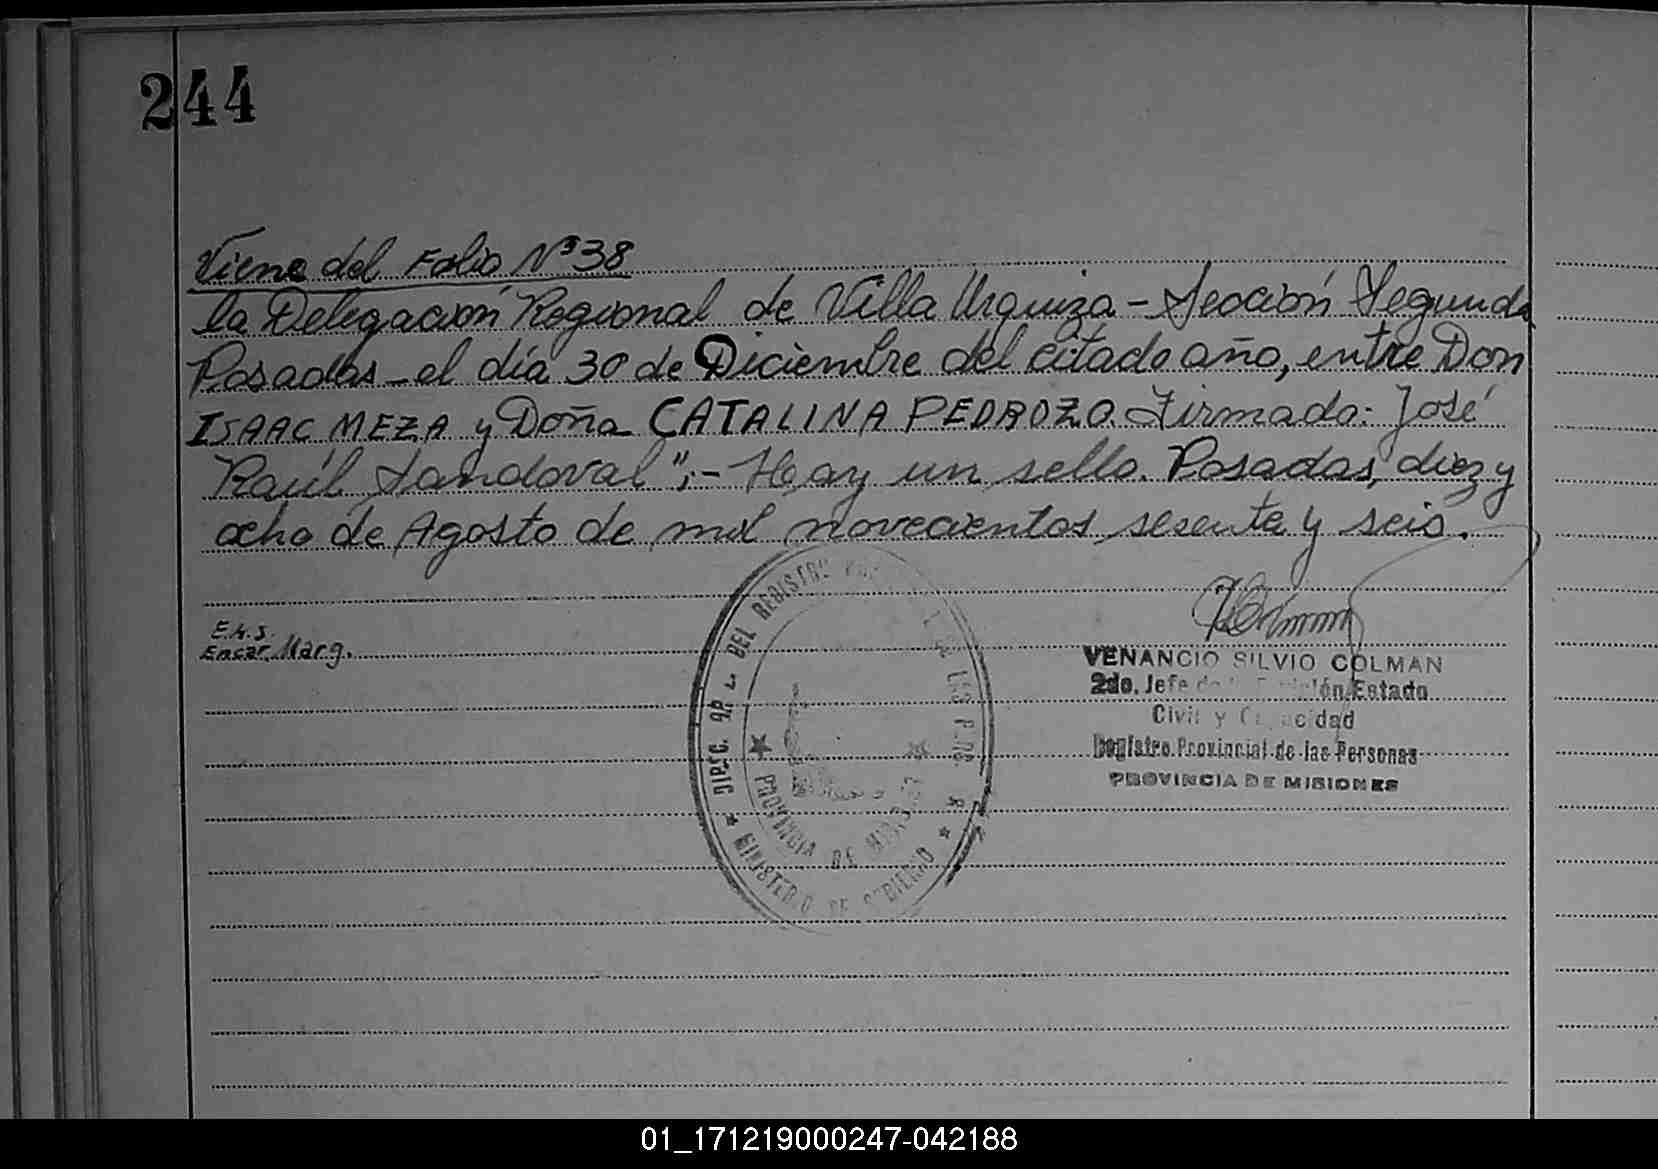 244
Viene del Folio Nº 38
la Delegación Regional de Villa Urquiza - Sección Segunda
Posadas - el día 30 de Diciembre del citado año, entre Don
ISAAC MEZA y Doña CATALINA PEDROZO. Firmado: José
Raúl Sandoval"; - Hay un sello. Posadas, diez y
ocho de Agosto de mil novecientos sesenta y seis.
E.h.S.
Encar. Marg.
VENANCIO SILVIO COLMAN
2do. Jefe Estado
Civil y Capacidad
Registro Provincial de las Personas
PROVINCIA DE MISIONES
DIREC. GRAL. DEL REGISTRO DE LAS
MINISTERIO DE GOBIERNO
PROVINCIA DE MISIONES
01_171219000247-042188